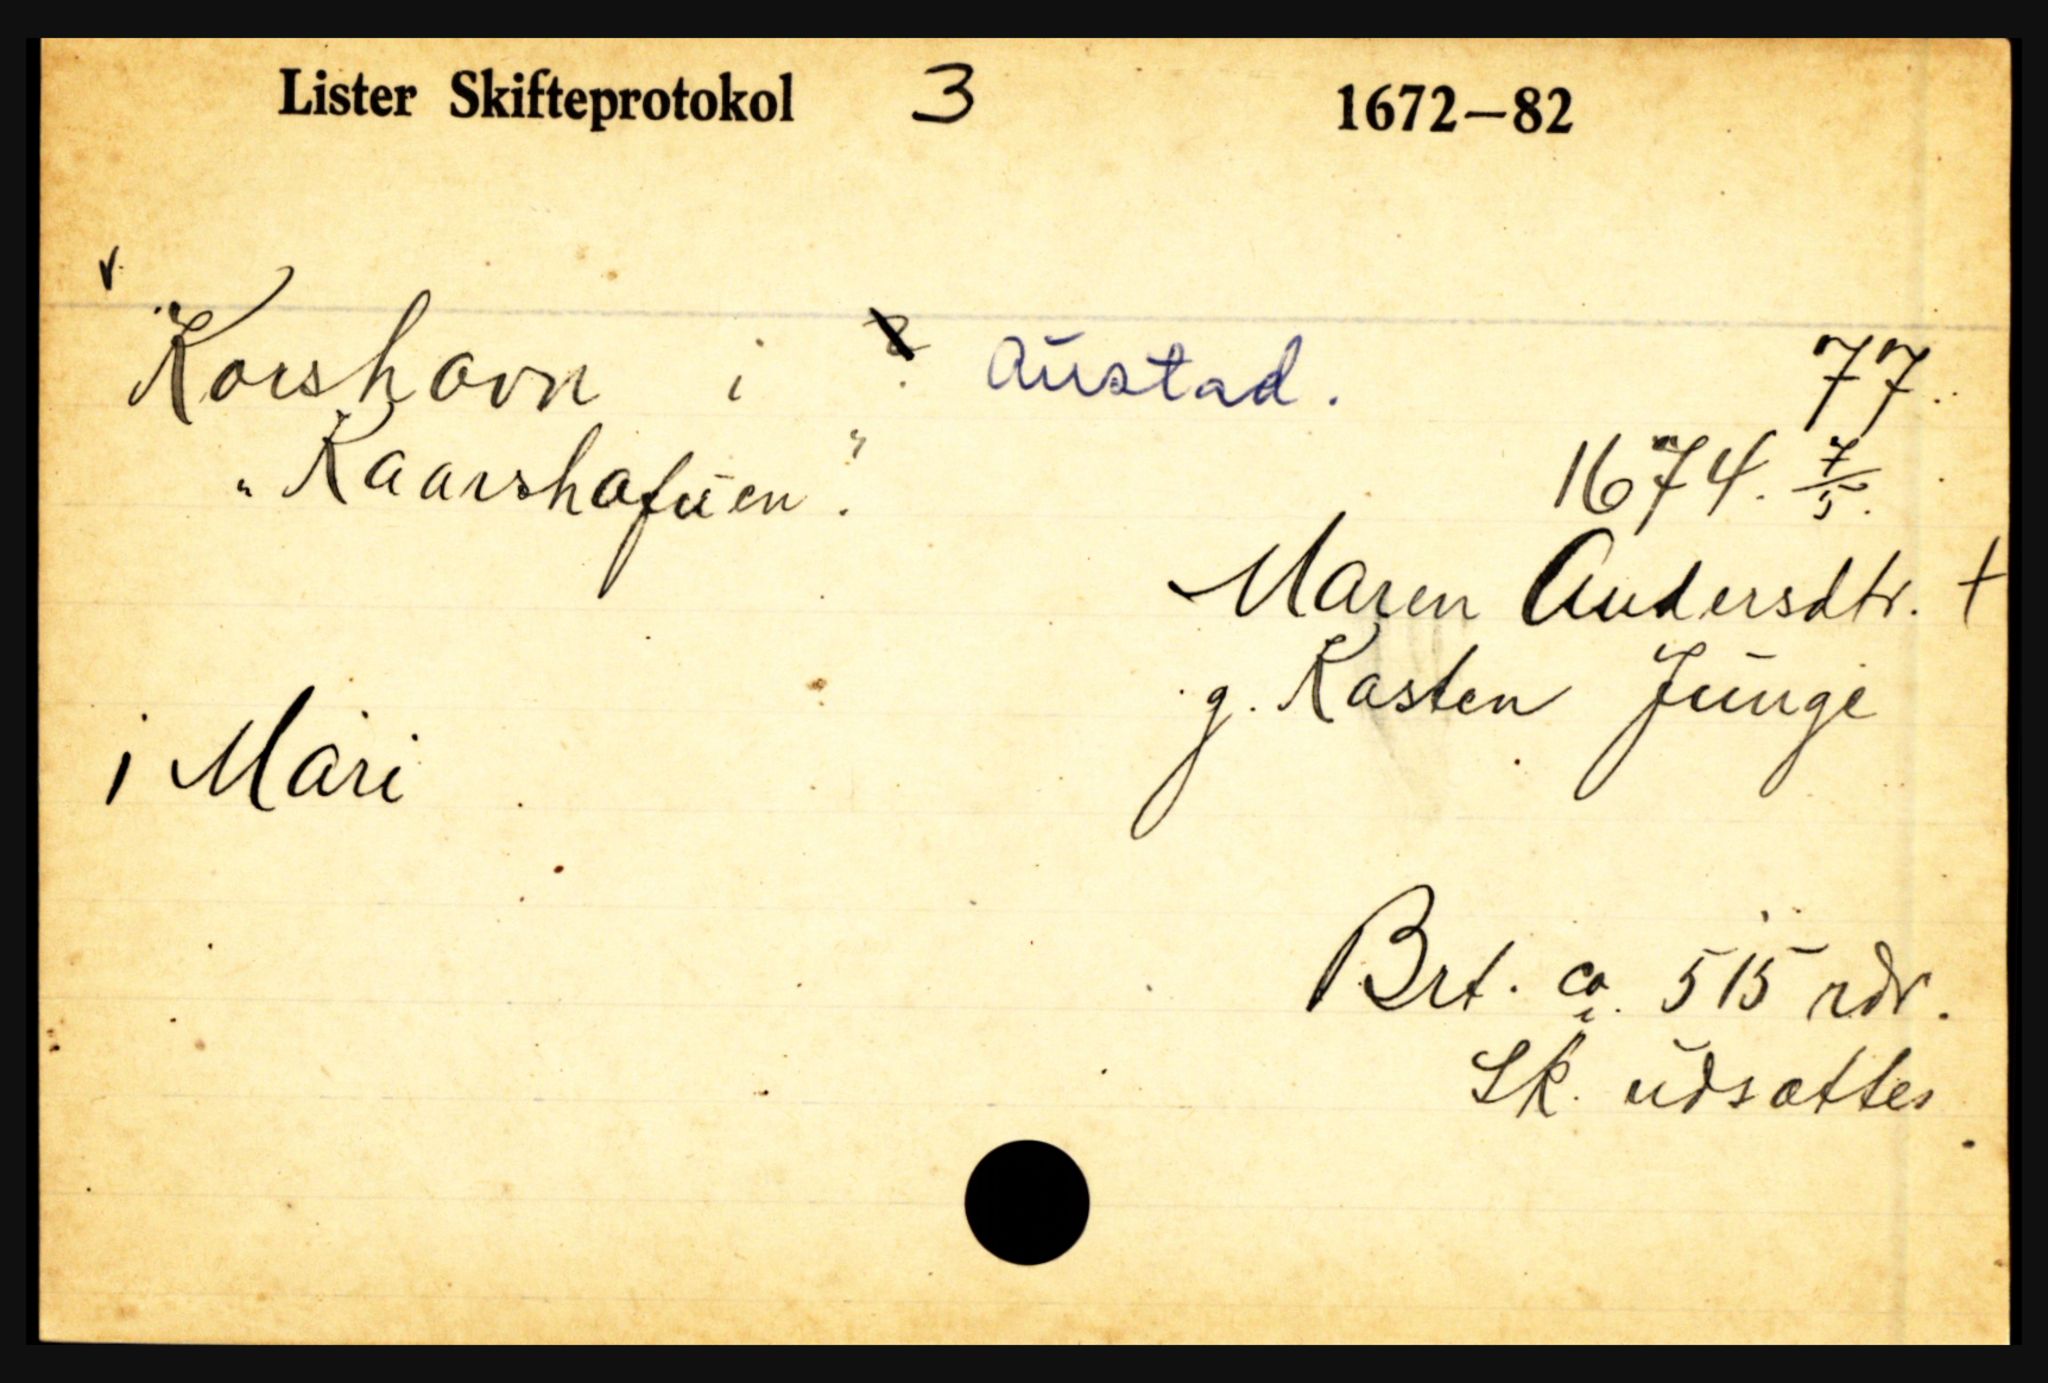 Lister Skifteprotokol 3 1672—82
v
Korshavn i Austad. 77.
"Kaarshafuen".
1674. 7/5.
Maren Andersdtr. +
g. Kasten Junge
i Mari
Brt. ca. 515 rdr.
Sk. udsattes